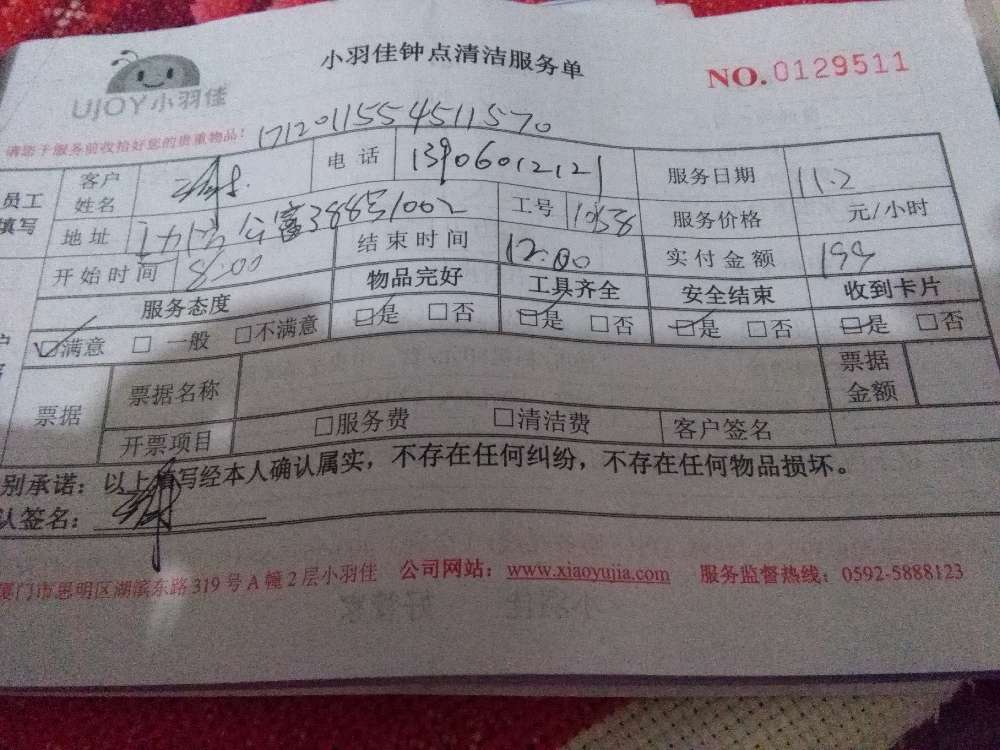 小羽佳钟点清洁服务单
NO.0129511
UJOY小羽佳
请您于服务前收拾好您的贵重物品!
171201155451570
员工填写 客户姓名 电话 13906012121 服务日期 11.2
地址 388号1002 工号 10538 服务价格 元/小时
开始时间 8:00 结束时间 12:00 实付金额 199
服务态度 物品完好 工具齐全 安全结束 收到卡片
☑满意 □一般 □不满意 ☑是 □否 ☑是 □否 ☑是 □否 ☑是 □否
票据 票据名称 票据金额
开票项目 □服务费 □清洁费 客户签名
别承诺：以上填写经本人确认属实，不存在任何纠纷，不存在任何物品损坏。
认签名：
厦门市思明区湖滨东路319号A幢2层小羽佳 公司网站：www.xiaoyujia.com 服务监督热线：0592-5888123